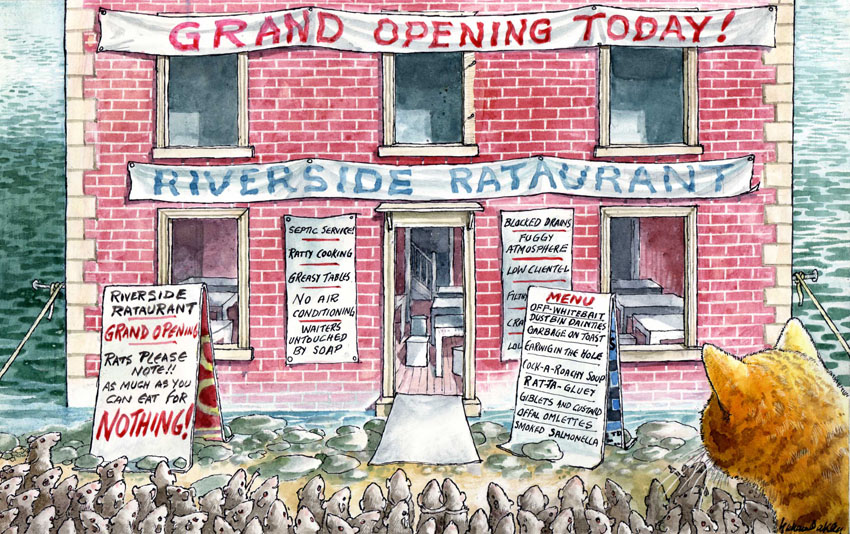 GRAND OPENING TODAY!
RIVERSIDE RATAURANT
SEPTIC SERVICE!
RATTY COOKING
GREASY TABLES
NO AIR
CONDITIONING
WAITERS
UNTOUCHED
BY SOAP
BLOCKED DRAINS
FUGGY
ATMOSPHERE
LOW CLIENTEL
RIVERSIDE
RATAURANT
GRAND OPENING
RATS PLEASE
NOTE!!
AS MUCH AS YOU
CAN EAT FOR
NOTHING!
MENU
OFF-WHITEBAIT
DUSTBIN DAINTIES
GARBAGE ON TOAST
EARWIG IN THE HOLE
COCK-A-ROACHY SOUP
RAT-TA-GLUEY
GIBLETS AND CUSTARD
OFFAL OMLETTES
SMOKED SALMONELLA